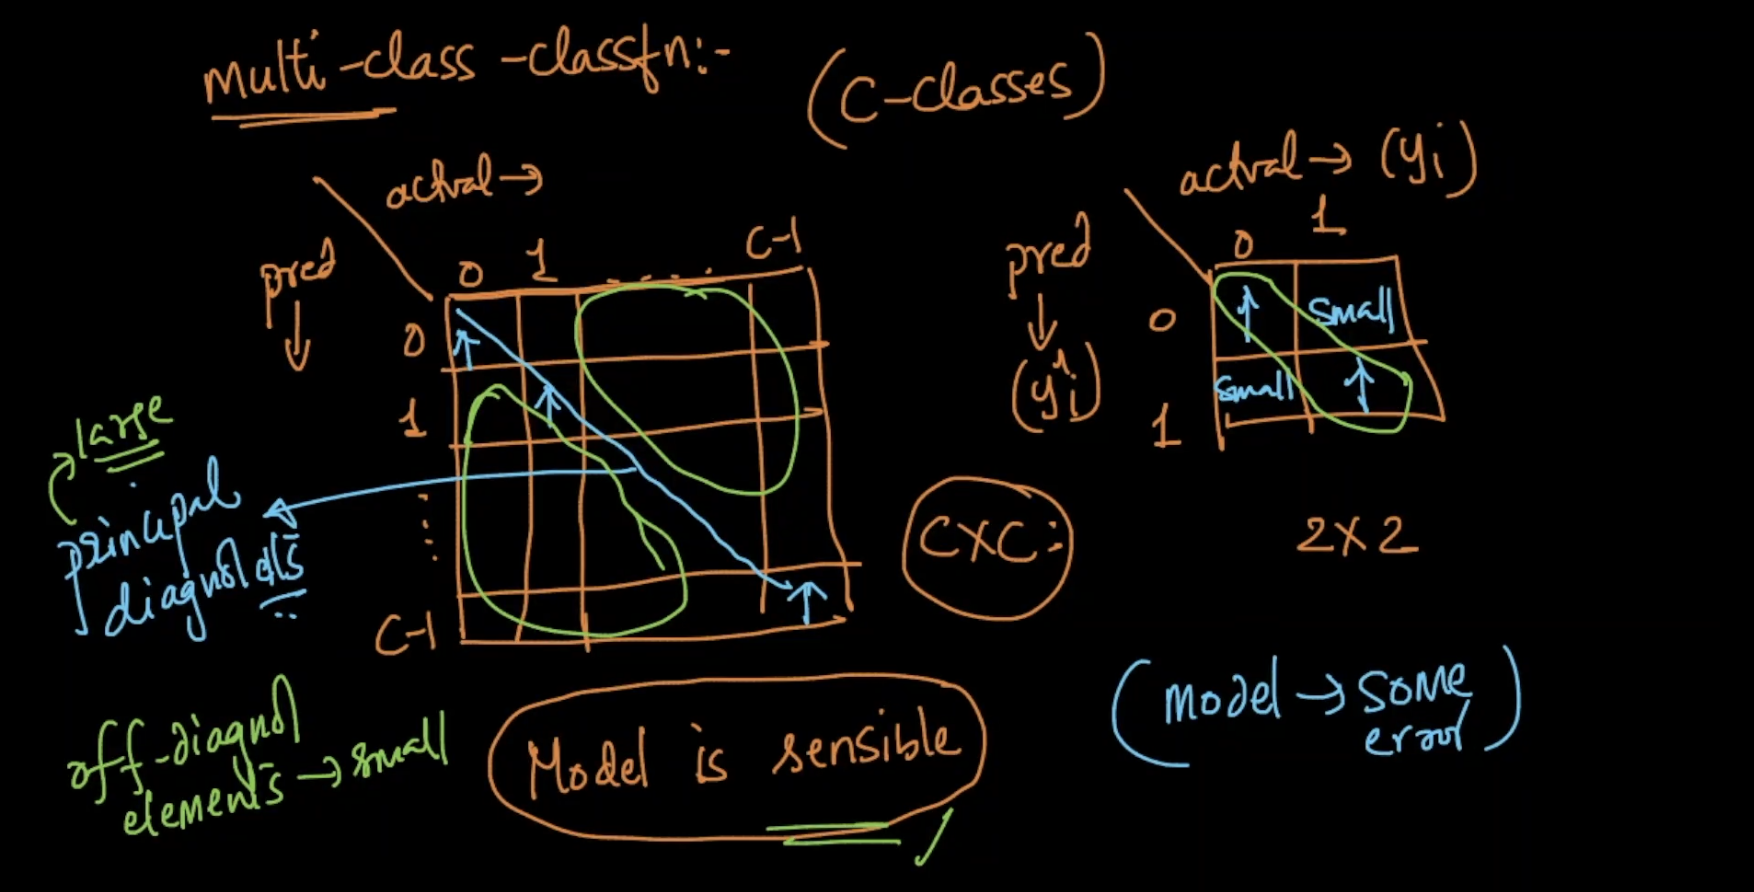 multi-class-classfn:-
(C-classes)
actual →
pred ↓
0 1 ..... C-1
0
1
⋮
C-1
large
principal
diagnol els
off-diagnol
elements → small
Model is sensible
CXC:
actual → (yi)
pred ↓
(ŷi)
0 1
0 ↑ small
1 small ↑
2X2
(model → some
error)